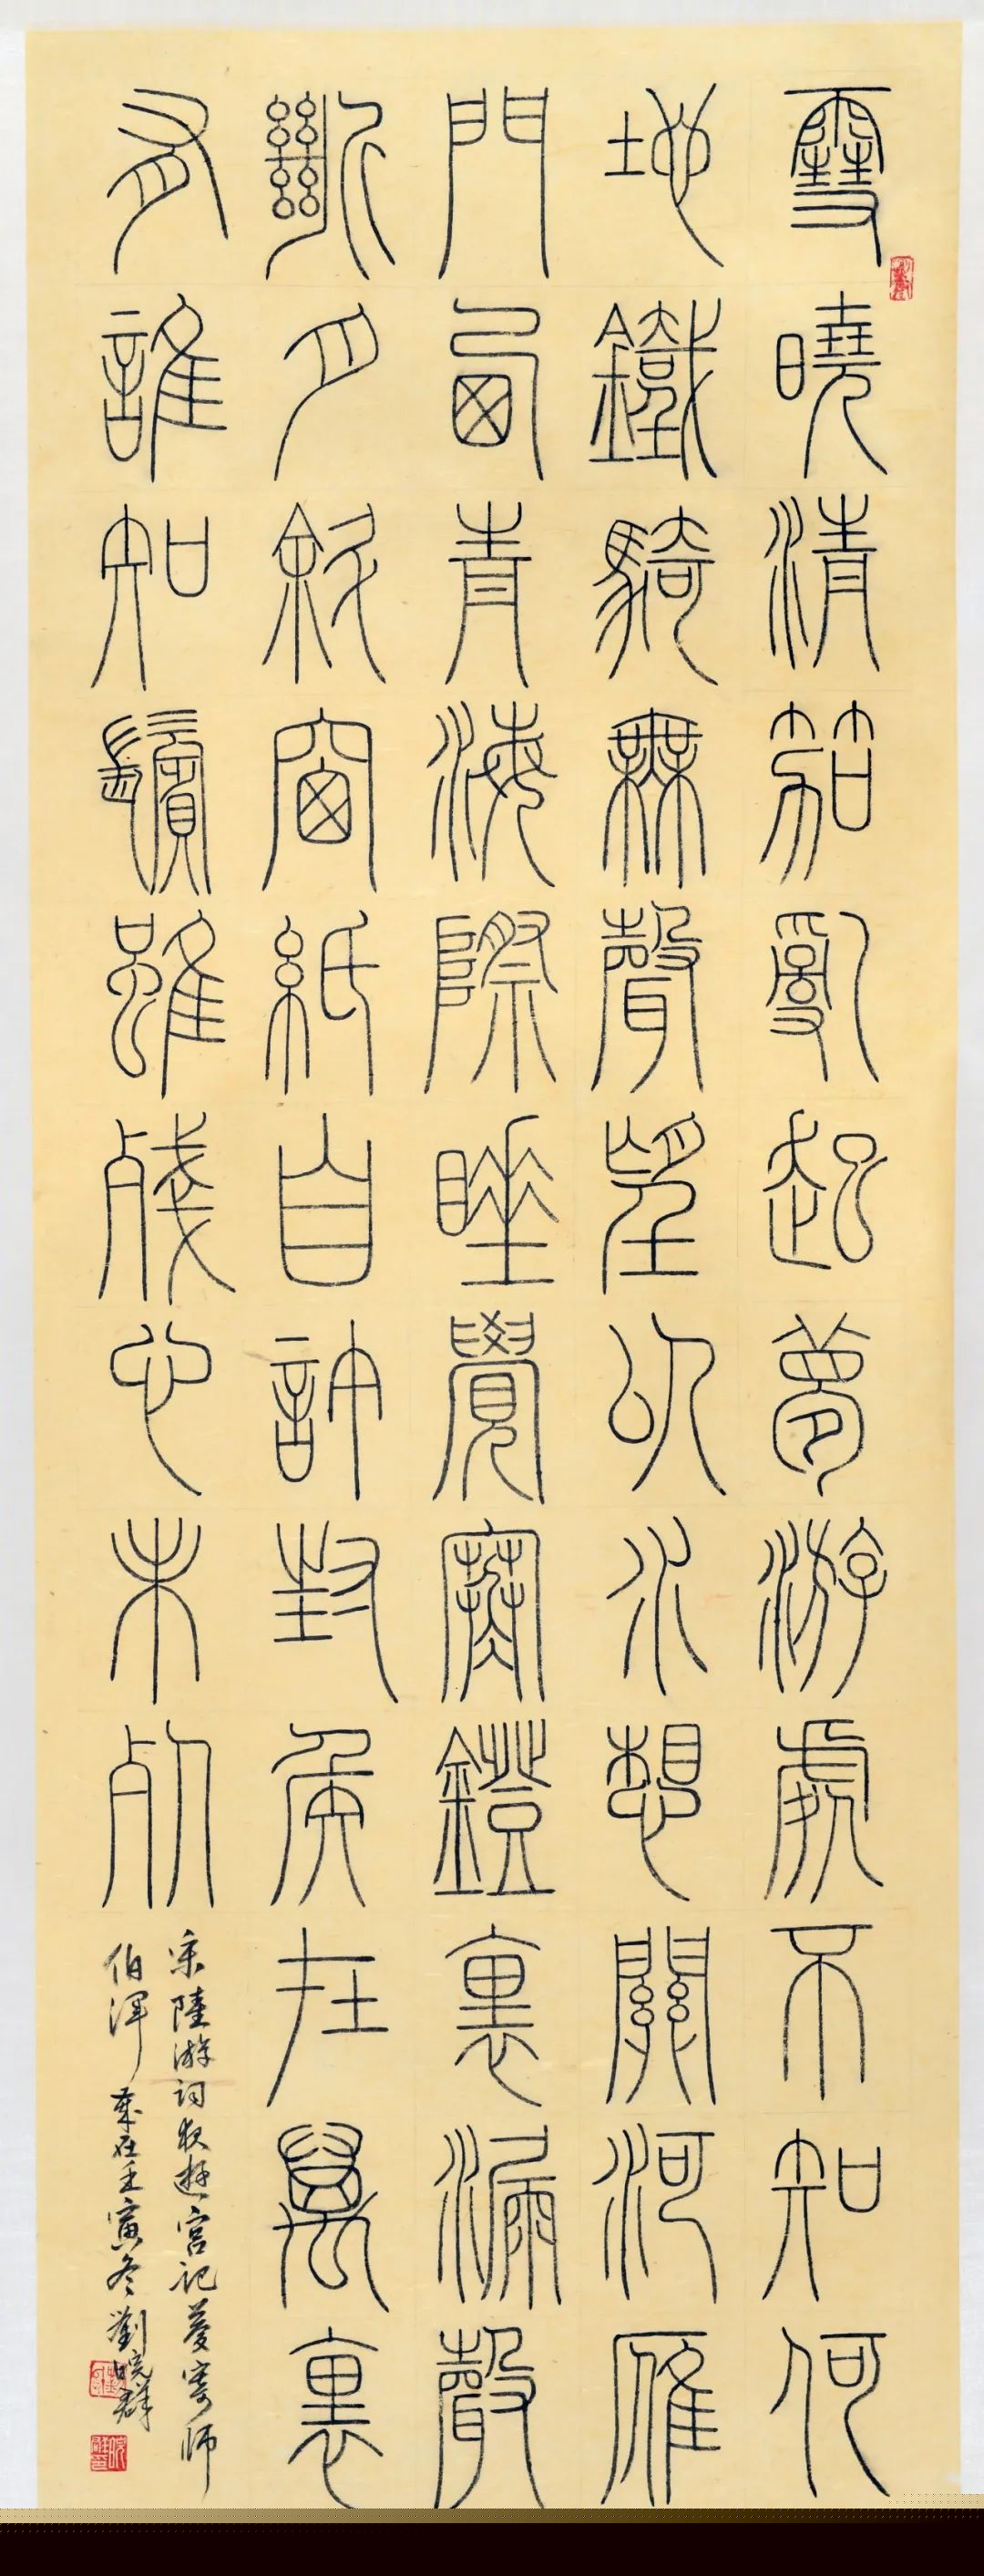 雪曉清笳亂起夢游處不知何
地鐵騎無聲望似水想關河雁
門西青海際睡覺寒鐙裏漏聲
斷月斜窗紙自許封侯在萬裏
有誰知鬢雖殘心未死
宋陸游詞夜遊宮記夢寄師
伯渾 歲在壬寅冬劉群